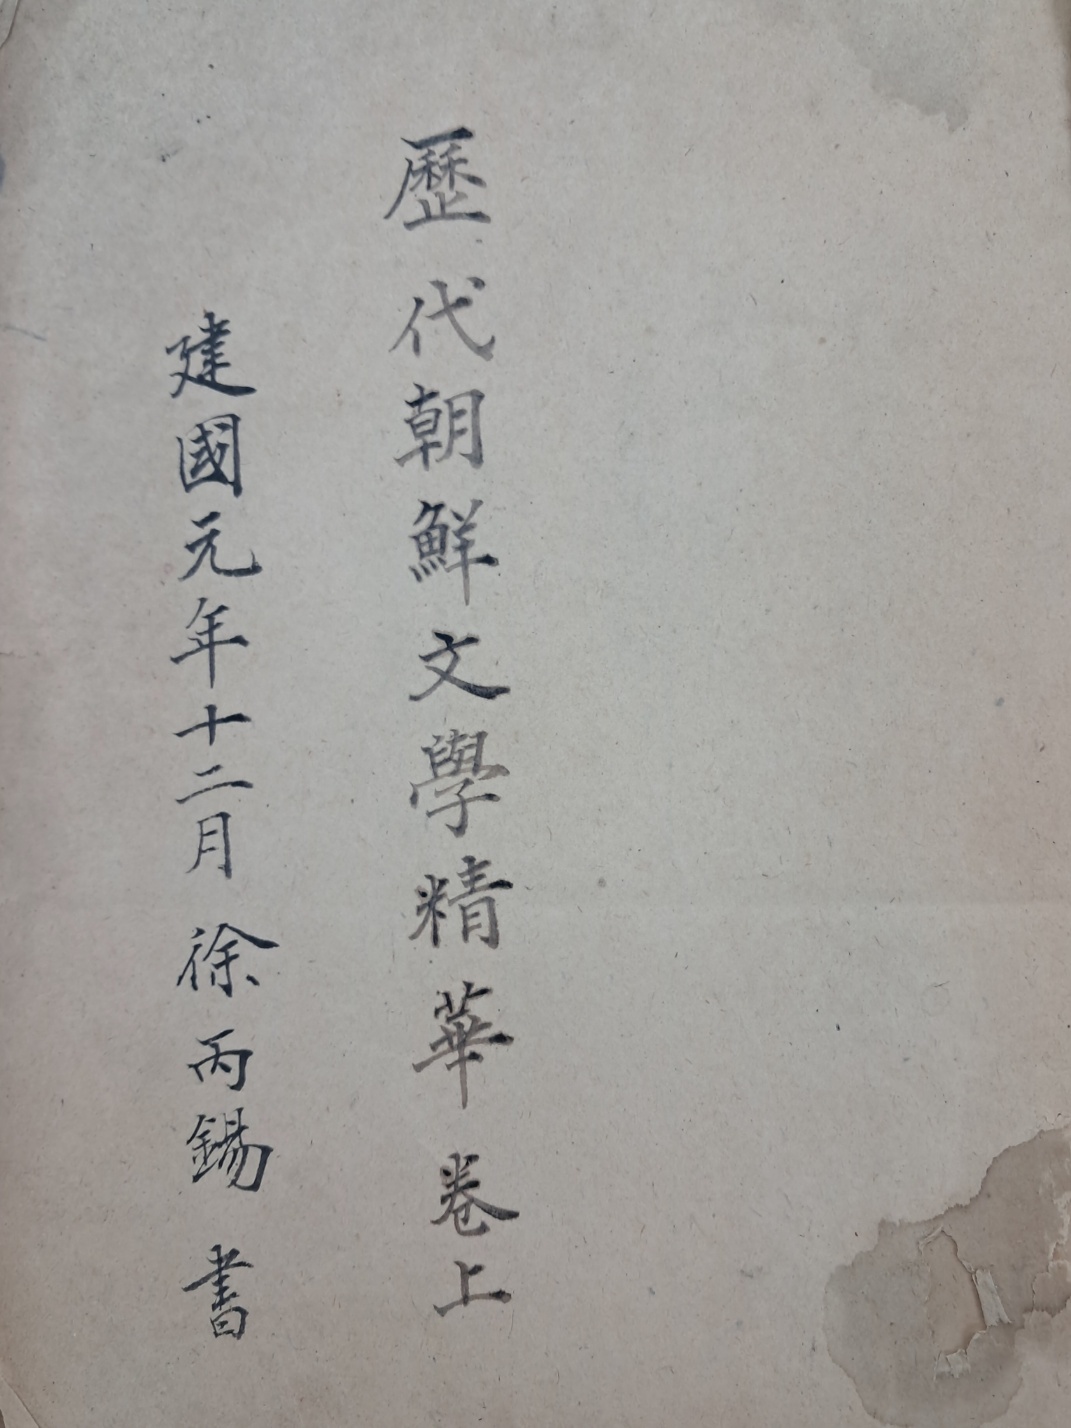 歷代朝鮮文學精華 卷上
建國元年十二月 徐丙錫 書